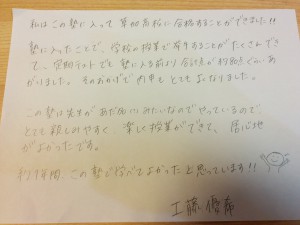 私はこの塾に入って 草加高校に合格することができました!!
塾に入ったことで、学校の授業で有利することがたくさんでき
て、定期テストでも塾に入る前より合計点が約80点くらいあ
がりました。そのおかげで内申もとてもよくなりました。
この塾は先生があだ名みたいなのでやっているので、
とても親しみやすく 楽しく授業ができて、居心地
がよかったです。
約1年間 この塾で学べてよかったと思っています!!
工藤